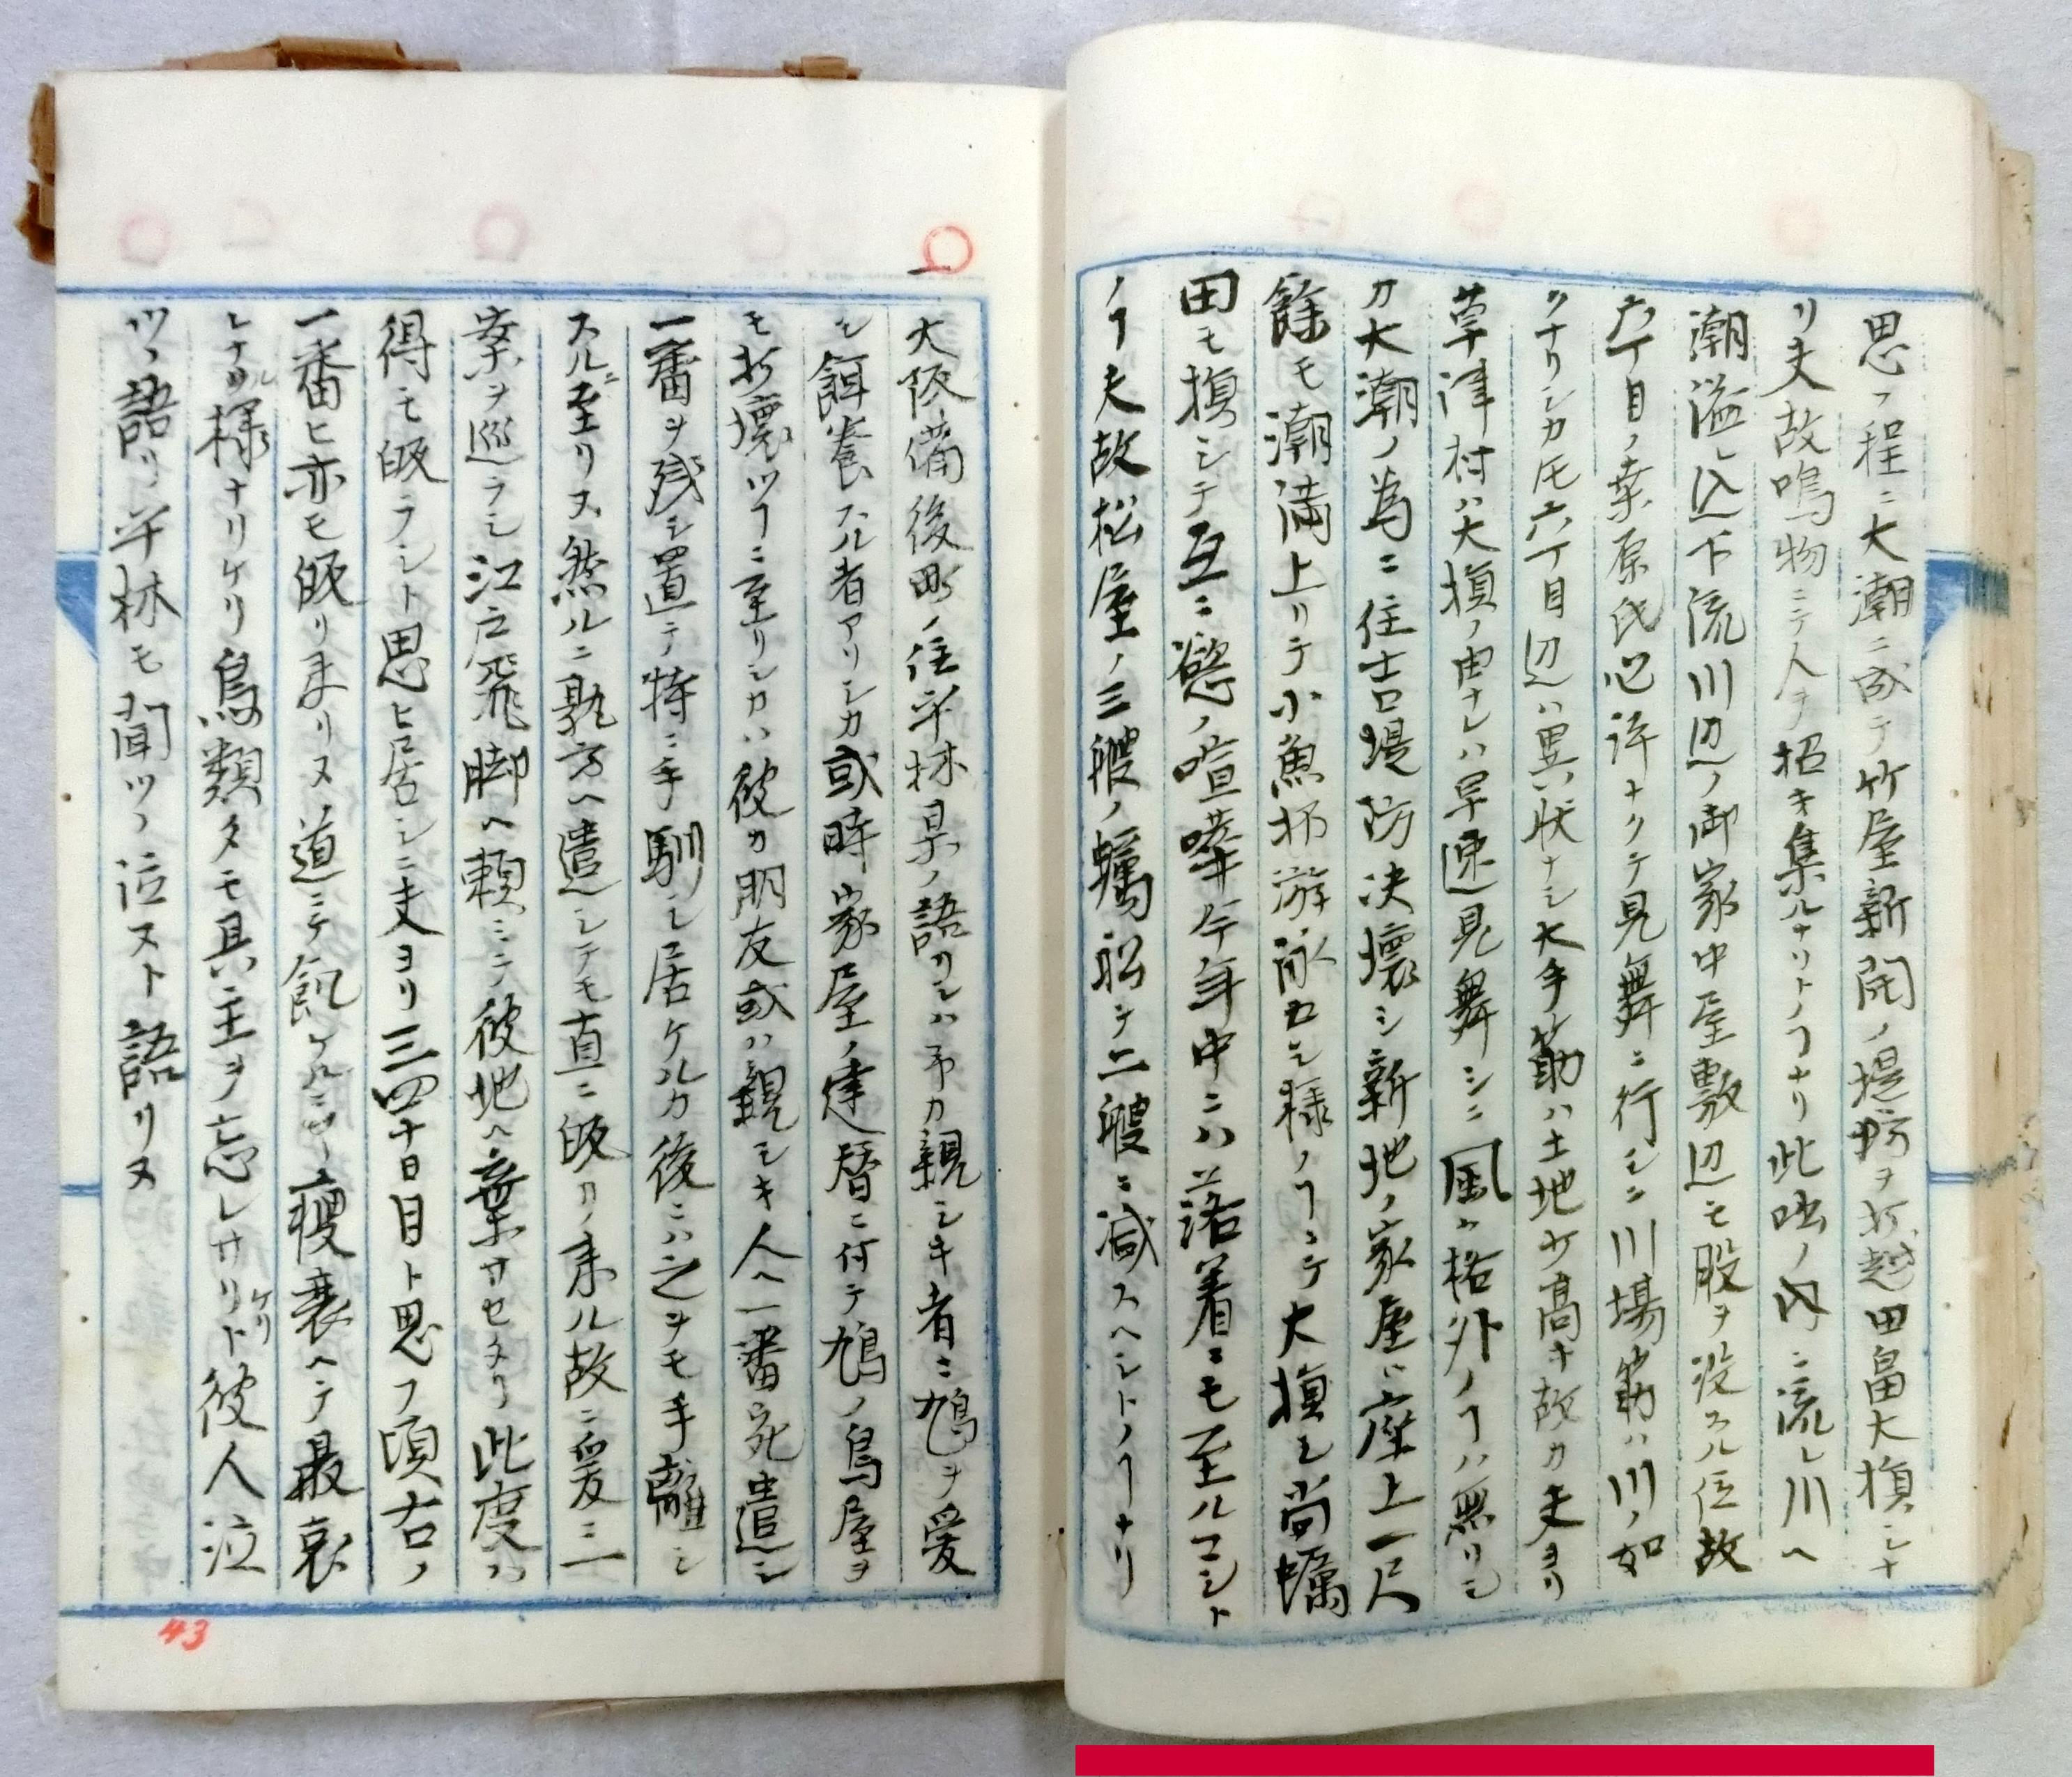 思フ程ニ大潮ニ成テ竹屋新開ノ堤防ヲ打越田畠大損シナ
リ夫故鳴物ニテ人ヲ招キ集ルナリトノヿナリ此㕝ノ内ニ流レ川ヘ
潮溢レ込下流川辺ノ御家中屋敷辺モ股ヲ没スル位故
六丁目ノ桒原氏心許ナクテ見舞ニ行シニ川場筋ハ川ノ如
クナリシカ𪜈六丁目辺ハ異状ナシ大手筋ハ土地カ高キ故カ夫ヨリ
草津村ハ大損ノ由ナレハ早速見舞シニ風ハ格外ノヿハ無リシ
カ大潮ノ為ニ住吉堤防决壊シ新地ノ家屋ハ座上一尺
餘モ潮満上リテ小魚抔游泳カシ様ノヿニテ大損シ尚蠣
田モ損シテ互ニ慾ノ喧嘩今年中ニハ落着ニモ至ルマシト
ノヿ夫故松屋ノ三艘ノ蠣舩モ二艘ニ減スヘシトノヿナリ
一大阪備後町ノ住平林某ノ語リシハ予カ親シキ者ニ鳩ヲ愛
シ餌養スル者アリシカ或時家屋ノ建替ニ付テ鳩ノ鳥屋ヲ
モ打壊ツヿニ至リシカハ彼カ朋友或ハ親シキ人ヘ一番宛遣シ
一番ヲ残シ置テ特ニ手馴シ居ケルカ後ニハ之ヲモ手離シ
スルニ至リヌ然ルニ孰方ヘ遣シテモ直ニ皈リ来ル故ニ爰ニ一
案ヲ巡ラシ江戸飛脚ヘ頼ミテ彼地ヘ棄サセタリ此度ハ
得モ皈ラシト思ヒ居シニ夫ヨリ三四十日目ト思フ頃右ノ
一番ヒ亦モ皈リ来リヌ道ニテ飢ケルニヤ瘦衰ヘテ最哀
レナル様ナリケリ鳥類タモ其主ヲ忘レサリケリト彼人泣
ツヽ語リ平林モ聞ツヽ泣ヌト語リヌ
43